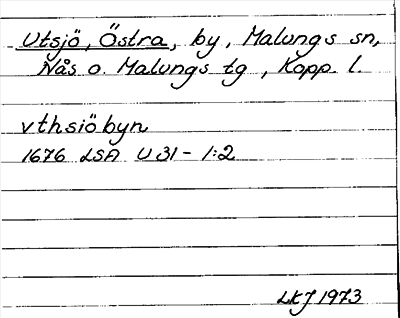 Utsjö, Östra, by, Malungs sn,
Nås o. Malungs tg, Kopp. l.
vthsiöbyn
1676 LSA U 31 - 1:2
LKJ 1973